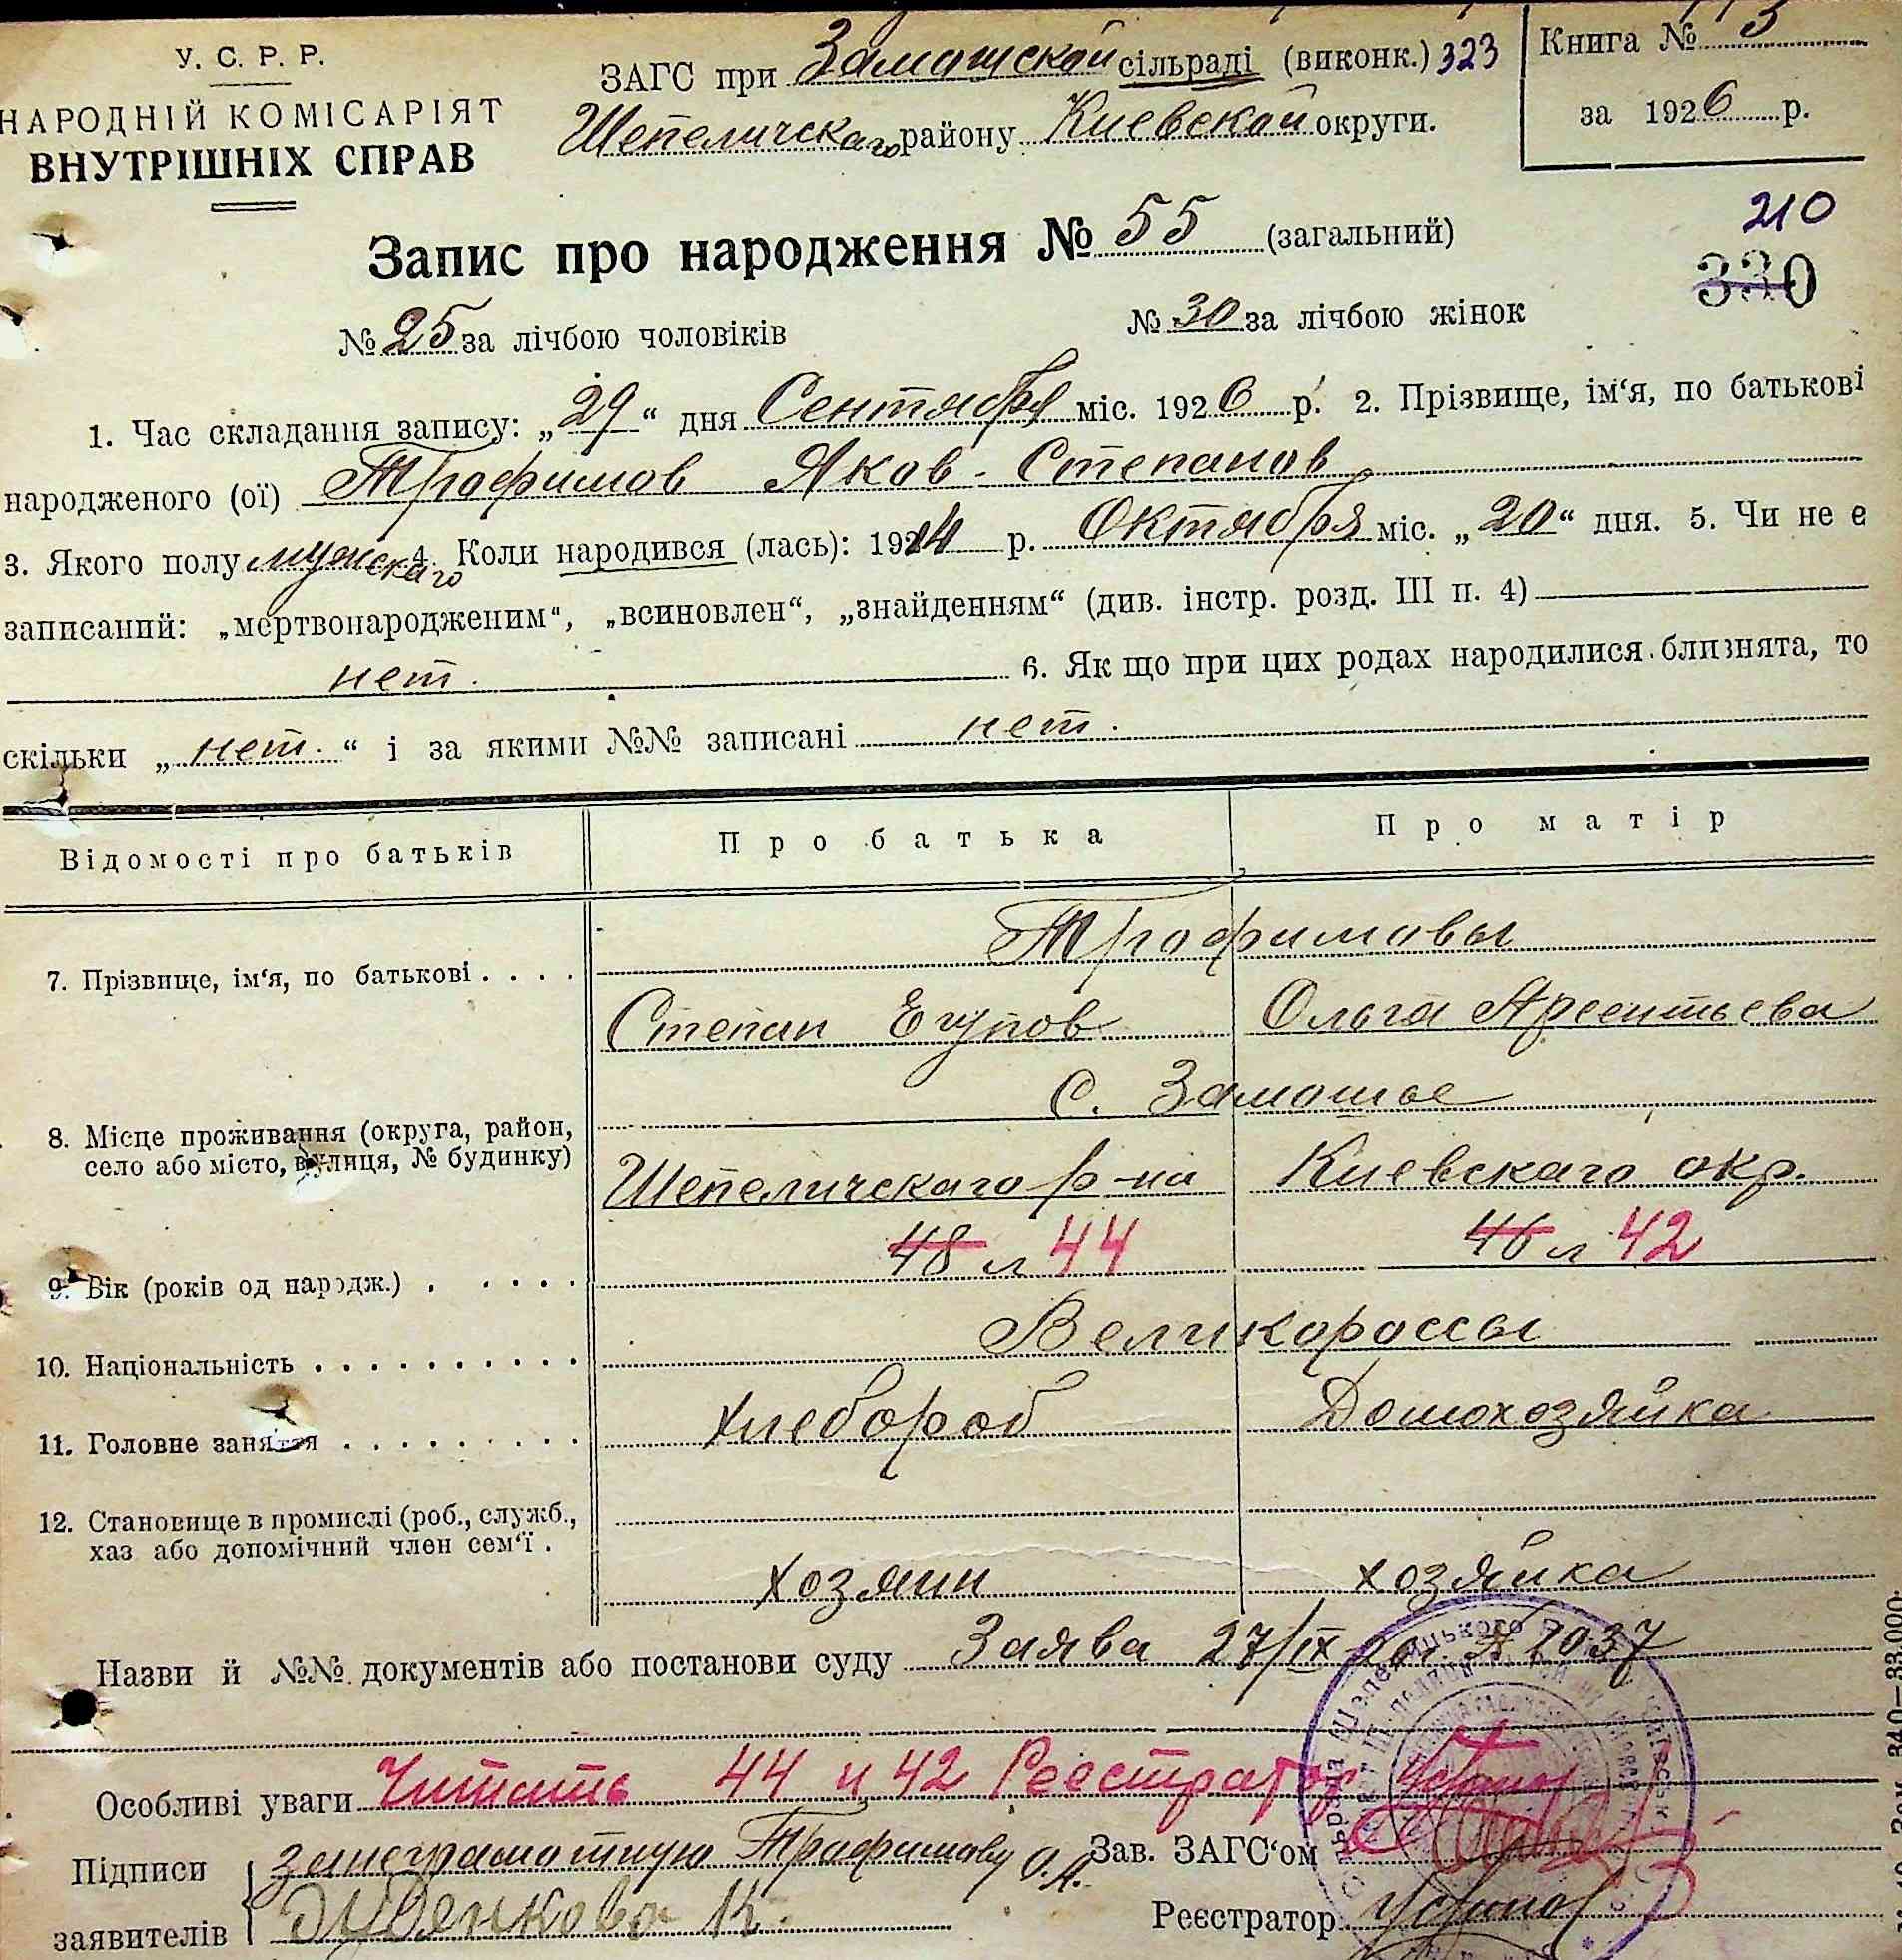 У. С. Р. Р.
НАРОДНІЙ КОМІСАРІЯТ
ВНУТРІШНІХ СПРАВ
ЗАГС при Замошской сільраді (виконк.) 323
Шепеличскаго району Киевской округи.
Книга № 3
за 1926 р.
210
330
Запис про народження № 55 (загальний)
№ 25 за лічбою чоловіків № 30 за лічбою жінок
1. Час складання запису: „29“ дня Сентября міс. 1926 р. 2. Прізвище, ім‘я, по батькові
народженого (ої) Трофимов Яков - Степанов
3. Якого полу мужскаго 4. Коли народився (лась): 1914 р. Октября міс. „20“ дня. 5. Чи не є
записаний: „мертвонародженим“, „всиновлен“, „знайденням“ (див. інстр. розд. III п. 4)
нет. 6. Як що при цих родах народилися близнята, то
скільки „нет.“ і за якими №№ записані нет.
Відомості про батьків Про батька Про матір
Трофимовы
7. Прізвище, ім‘я, по батькові . . . .
Степан Егупов Ольга Арсентьева
С. Замошье
8. Місце проживання (округа, район,
село або місто, вулиця, № будинку)
Шепеличскаго р-на Киевскаго окр.
48 л 44 46 л 42
9. Вік (років од нарoдж.) . . . . .
Великороссы
10. Національність . . . . . . . . . .
хлебороб Домохозяйка
11. Головне заняття . . . . . . . . .
12. Становище в промислі (роб., служб.,
хаз або допомічний член сем‘ї .
хозяин хозяйка
Назви й №№ документів або постанови суду Заява 27/IX 2037
Особливі уваги Читать 44 и 42 Реестратор
Підписи
заявителів
занеграмотную Трофимову О. А.
Зав. ЗАГС‘ом
Реєстратор